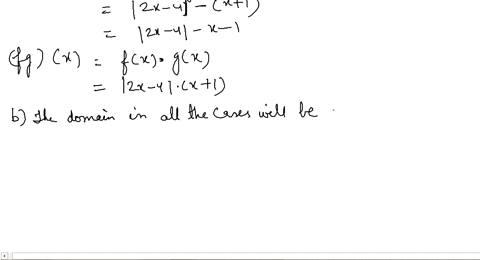 = |2x-4| - (x+1)
= |2x-4| - x - 1
(fg)(x) = f(x) • g(x)
= |2x-4| • (x+1)
b) The domain in all the cases will be